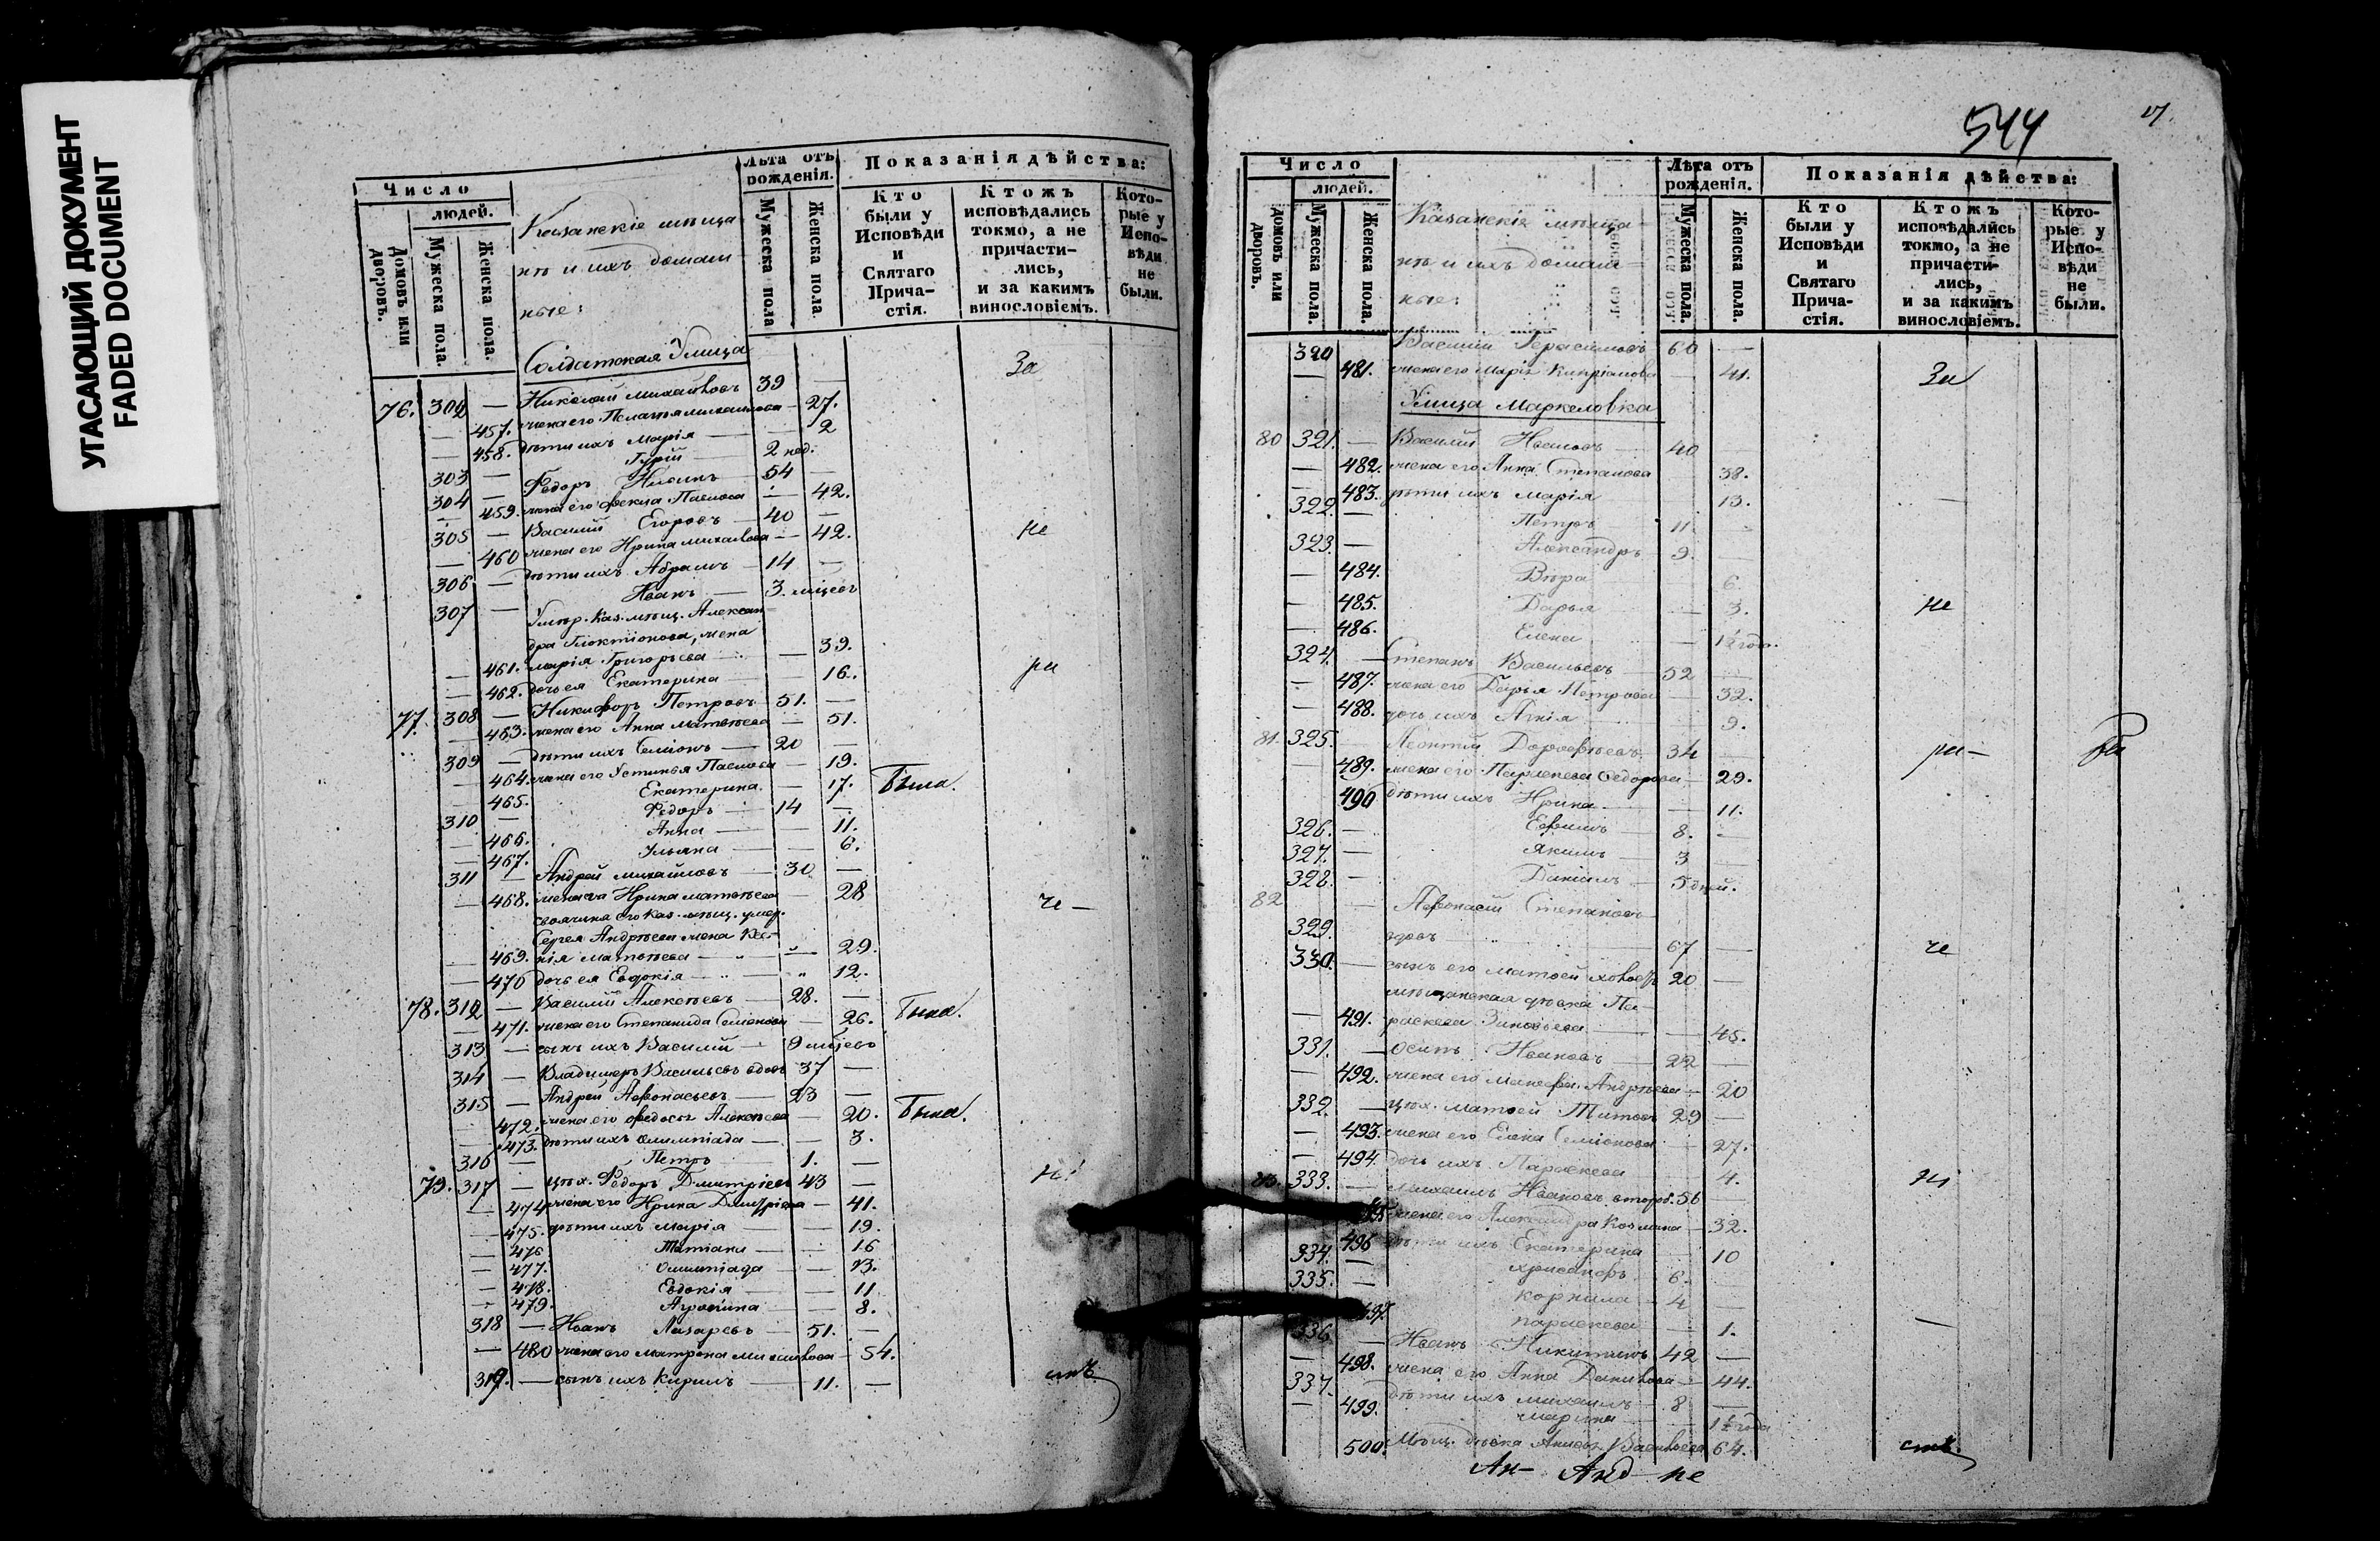 УГАСАЮЩИЙ ДОКУМЕНТ
FADED DOCUMENT
Число
людей.
Домовъ или дворовъ.
Мужеска пола.
Женска пола.
Казанскіе мѣща-
не и ихъ домаш-
ные:
Лѣта отъ рожденія.
Мужеска пола
Женска пола
Показанія дѣйства:
Кто были у Исповѣди и Святаго Прича-стія.
Ктожъ исповѣдались токмо, а не причасти-лись, и за какимъ винословіемъ.
Кото-рые у Испо-вѣди не были.
Солдатская Улица
76. 302 — Николай Михайловъ 39 —
— 457. жена его Пелагья Михайлова — 27.
— 458. дѣти ихъ Марія — 2
303 — Гурій 2 нед.
304 — Федоръ 54 —
— 459. жена его Фекла Павлова — 42.
305 — Василий Егоровъ 40 —
— 460 жена его Ирина Михайлова — 42.
306 — дѣти ихъ Абрамъ 14 —
307 — Иванъ 3. мѣсец
Умер. Каз. мѣщ. Алексан-
дра Глоктіонова, жена
— 461. Марія Григорьева — 39.
— 462. дочь ея Екатерина — 16.
77. 308 — Никифоръ Петровъ 51. —
— 463. жена его Анна Матвѣева — 51.
309 — дѣти ихъ Семіонъ 20 —
— 464. жена его Устинья Павлова — 19.
— 465. Екатерина. — 17. Была.
310 — Федоръ 14 —
— 466. Анна — 11.
— 467. Ульяна — 6.
311 — Андрей Михайловъ 30 —
— 468. жена его Ирина Матвѣева — 28
своячина его Каз. мѣщ. умер.
Сергея Андрѣева жена Ксе-
— 469. нія Матвѣева — 29.
— 470 дочь ея Евдокія — 12.
78. 312 — Василий Алексѣевъ 28. —
— 471. жена его Степанида Семіонова — 26. Была.
313 — сынъ ихъ Василий 9 мѣсец
314 — Владимеръ Васильевъ вдовъ 37 —
315 — Андрей Афонасьевъ 23 —
— 472. жена его Федосья Алексѣева — 20. Была.
— 473. дѣти ихъ Олимпіада — 3.
316 — Петръ 1. —
79. 317 — цех. Федоръ Дмитріевъ 43 —
— 474 жена его Ирина Дмитріева — 41.
— 475. дѣти ихъ Марія — 19.
— 476 Татіана — 16
— 477. Олимпіада — 13.
— 478. Евдокія — 11
— 479. Агрофина — 8.
318 — Иванъ Лазаревъ 51. —
— 480 жена его Матрена Михайлова — 54.
319. — сынъ ихъ Кирилъ 11. —
За
не
ра
че —
стъ.
544
Число
людей.
Домовъ или дворовъ.
Мужеска пола.
Женска пола.
Казанскіе мѣща-
не и ихъ домаш-
ные:
Лѣта отъ рожденія.
Мужеска пола.
Женска пола.
Показанія дѣйства:
Кто были у Исповѣди и Святаго Прича-стія.
Ктожъ исповѣдались токмо, а не причасти-лись, и за какимъ винословіемъ.
Кото-рые у Испо-вѣди не были.
320 Василий Герасимовъ 60 —
— 481. жена его Марія Кипріанова — 41.
Улица Маркеловка
80 321. — Василий Ивановъ 40
— 482. жена его Анна Степанова 38.
— 483. дѣти ихъ Марія 13.
322. — Петръ 11.
323. — Александръ 9.
— 484. Вѣра 6.
— 485. Дарья 3.
— 486. Елена — 1½ года.
324. — Степанъ Васильевъ 52
— 487. жена его Дарья Петрова 32.
— 488. дочь ихъ Агнія 9.
81. 325. — Леонтій Дорофѣевъ 34
— 489. жена его Параскева Федорова — 29.
490 дѣти ихъ Ирина — 11.
326. — Ефимъ 8.
327. — Якимъ 3
328. — Даніилъ 5 дней.
82 — Афонасій Степановъ
329. вдовъ 67 —
330. — сынъ его Матвей холост 20 —
мѣщанская дѣвка Па-
— 491. раскева Зиновьева — 45.
331. — Осипъ Ивановъ 22
— 492. жена его Андрѣева — 20
332. — цех. Матвей Титовъ 29 —
— 493. жена его Елена Семіонова 27.
— 494. дочь ихъ Параскева 4.
333. — Михаилъ Ивановъ второб. 56 —
жена его Александра Козмина — 32.
496 дѣти ихъ Екатерина 10
334. — Хрисанфъ 6.
335. — Корнила 4 —
497. Параскева — 1.
336 — Иванъ Никитинъ 42 —
— 498. жена его Анна Данилова — 44.
337. — дѣти ихъ Михаилъ 8 —
— 499. Марина 1½ года
500. Мѣщ. дѣвка Анисья Васильева 64.
За
не
ра —
че
стъ.
Ан- Анд не